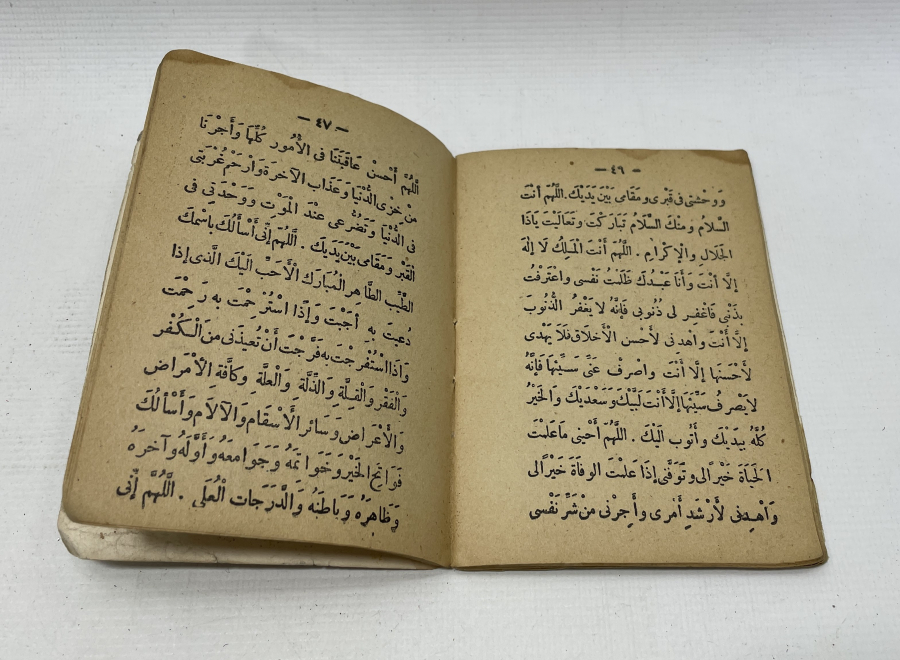 — ٤٦ —
وَوَحْشَتِى فِى قَبْرِى وَمَقَامِى بَيْنَ يَدَيْكَ. اللَّهُمَّ أَنْتَ
السَّلَامُ وَمِنْكَ السَّلَامُ تَبَارَكْتَ وَتَعَالَيْتَ يَاذَا
الجَلَالِ وَالإِكْرَامِ . اللَّهُمَّ أَنْتَ الْمَلِكُ لَا إِلٰهَ
إِلَّا أَنْتَ وَأَنَا عَبْدُكَ ظَلَمْتُ نَفْسِى وَاعْتَرَفْتُ
بِذَنْبِى فَاغْفِرْ لِى ذُنُوبِى فَإِنَّهُ لَا يَغْفِرُ الذُّنُوبَ
إِلَّا أَنْتَ وَاهْدِنِى لِأَحْسَنِ الأَخْلَاقِ فَلَا يَهْدِى
لِأَحْسَنِهَا إِلَّا أَنْتَ وَاصْرِفْ عَنِّى سَيِّئَهَا فَإِنَّهُ
لَا يَصْرِفُ سَيِّئَهَا إِلَّا أَنْتَ لَبَّيْكَ وَسَعْدَيْكَ وَالْخَيْرُ
كُلُّهُ بِيَدَيْكَ وَأَتُوبُ الَيْكَ . اللَّهُمَّ أَحْيِنِى مَا عَلِمْتَ
الحَيَاةَ خَيْرًا لِى وَتَوَفَّنِى إِذَا عَلِمْتَ الوَفَاةَ خَيْرًا لِى
وَاهْدِنِى لِأَرْشَدِ أَمْرِى وَأَجِرْنِى مِنْ شَرِّ نَفْسِى
— ٤٧ —
اللَّهُمَّ أَحْسِنْ عَاقِبَتَنَا فِى الأُمُورِ كُلِّهَا وَأَجِرْنَا
مِنْ خِزْىِ الدُّنْيَا وَعَذَابِ الآخِرَةِ وَارْحَمْ غُرْبَتِى
فِى الدُّنْيَا وَتَضَرُّعِى عِنْدَ الْمَوْتِ وَوَحْدَتِى فِى
القَبْرِ وَمَقَامِى بَيْنَ يَدَيْكَ . اللَّهُمَّ إِنِّى أَسْأَلُكَ بِاسْمِكَ
الطَّيِّبِ الطَّاهِرِ الْمُبَارَكِ الْأَحَبِّ الَيْكَ الَّذِى إِذَا
دُعِيتَ بِهِ أَجَبْتَ وَإِذَا اسْتُرْحِمْتَ بِهِ رَحِمْتَ
وَإِذَا اسْتُفْرِجْتَ بِهِ فَرَّجْتَ أَنْ تُعِيذَنِى مِنَ الْكُفْرِ
وَالْفَقْرِ وَالْقِلَّةِ وَالذِّلَّةِ وَالْعِلَّةِ وَكَافَّةِ الأَمْرَاضِ
وَالأَعْرَاضِ وَسَائِرِ الْأَسْقَامِ وَالْآلَامِ وَأَسْأَلُكَ
فَوَاتِحَ الْخَيْرِ وَخَوَاتِمَهُ وَجَوَامِعَهُ وَأَوَّلَهُ وَآخِرَهُ
وَظَاهِرَهُ وَبَاطِنَهُ وَالدَّرَجَاتِ الْعُلَى . اللَّهُمَّ إِنِّى